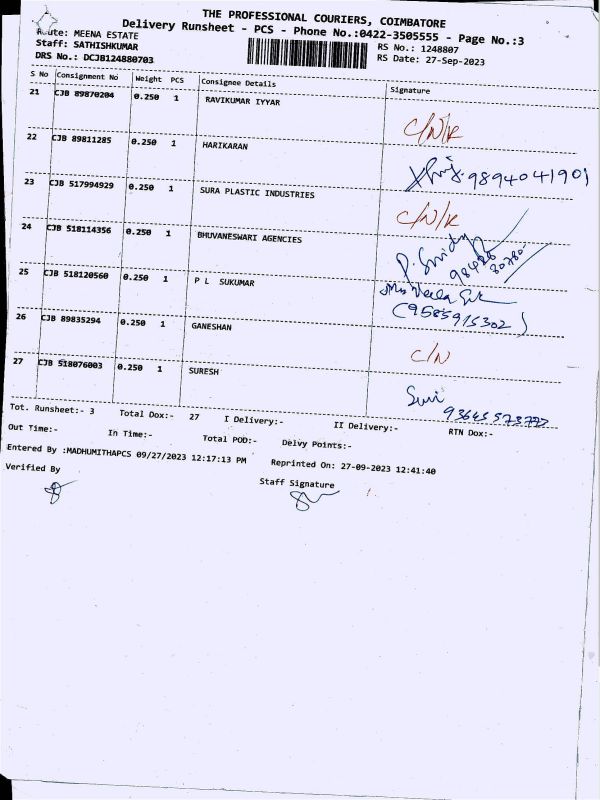 THE PROFESSIONAL COURIERS, COIMBATORE
Delivery Runsheet - PCS - Phone No.:0422-3505555 - Page No.:3
Route: MEENA ESTATE
Staff: SATHISHKUMAR RS No.: 1248807
DRS No.: DCJB124880703 RS Date: 27-Sep-2023
S No Consignment No Weight PCS Consignee Details Signature
21 CJB 89870204 0.250 1 RAVIKUMAR IYYAR
C/N/R
22 CJB 89811285 0.250 1 HARIKARAN
9894041901
23 CJB 517994929 0.250 1 SURA PLASTIC INDUSTRIES
C/N/R
24 CJB 518114356 0.250 1 BHUVANESWARI AGENCIES
25 CJB 518120560 0.250 1 P L SUKUMAR
(9585915302)
26 CJB 89835294 0.250 1 GANESHAN
C/N
27 CJB 518076003 0.250 1 SURESH
Tot. Runsheet:- 3 Total Dox:- 27 I Delivery:- II Delivery:- RTN Dox:-
Out Time:- In Time:- Total POD:- Delvy Points:-
Entered By :MADHUMITHAPCS 09/27/2023 12:17:13 PM Reprinted On: 27-09-2023 12:41:40
Verified By Staff Signature